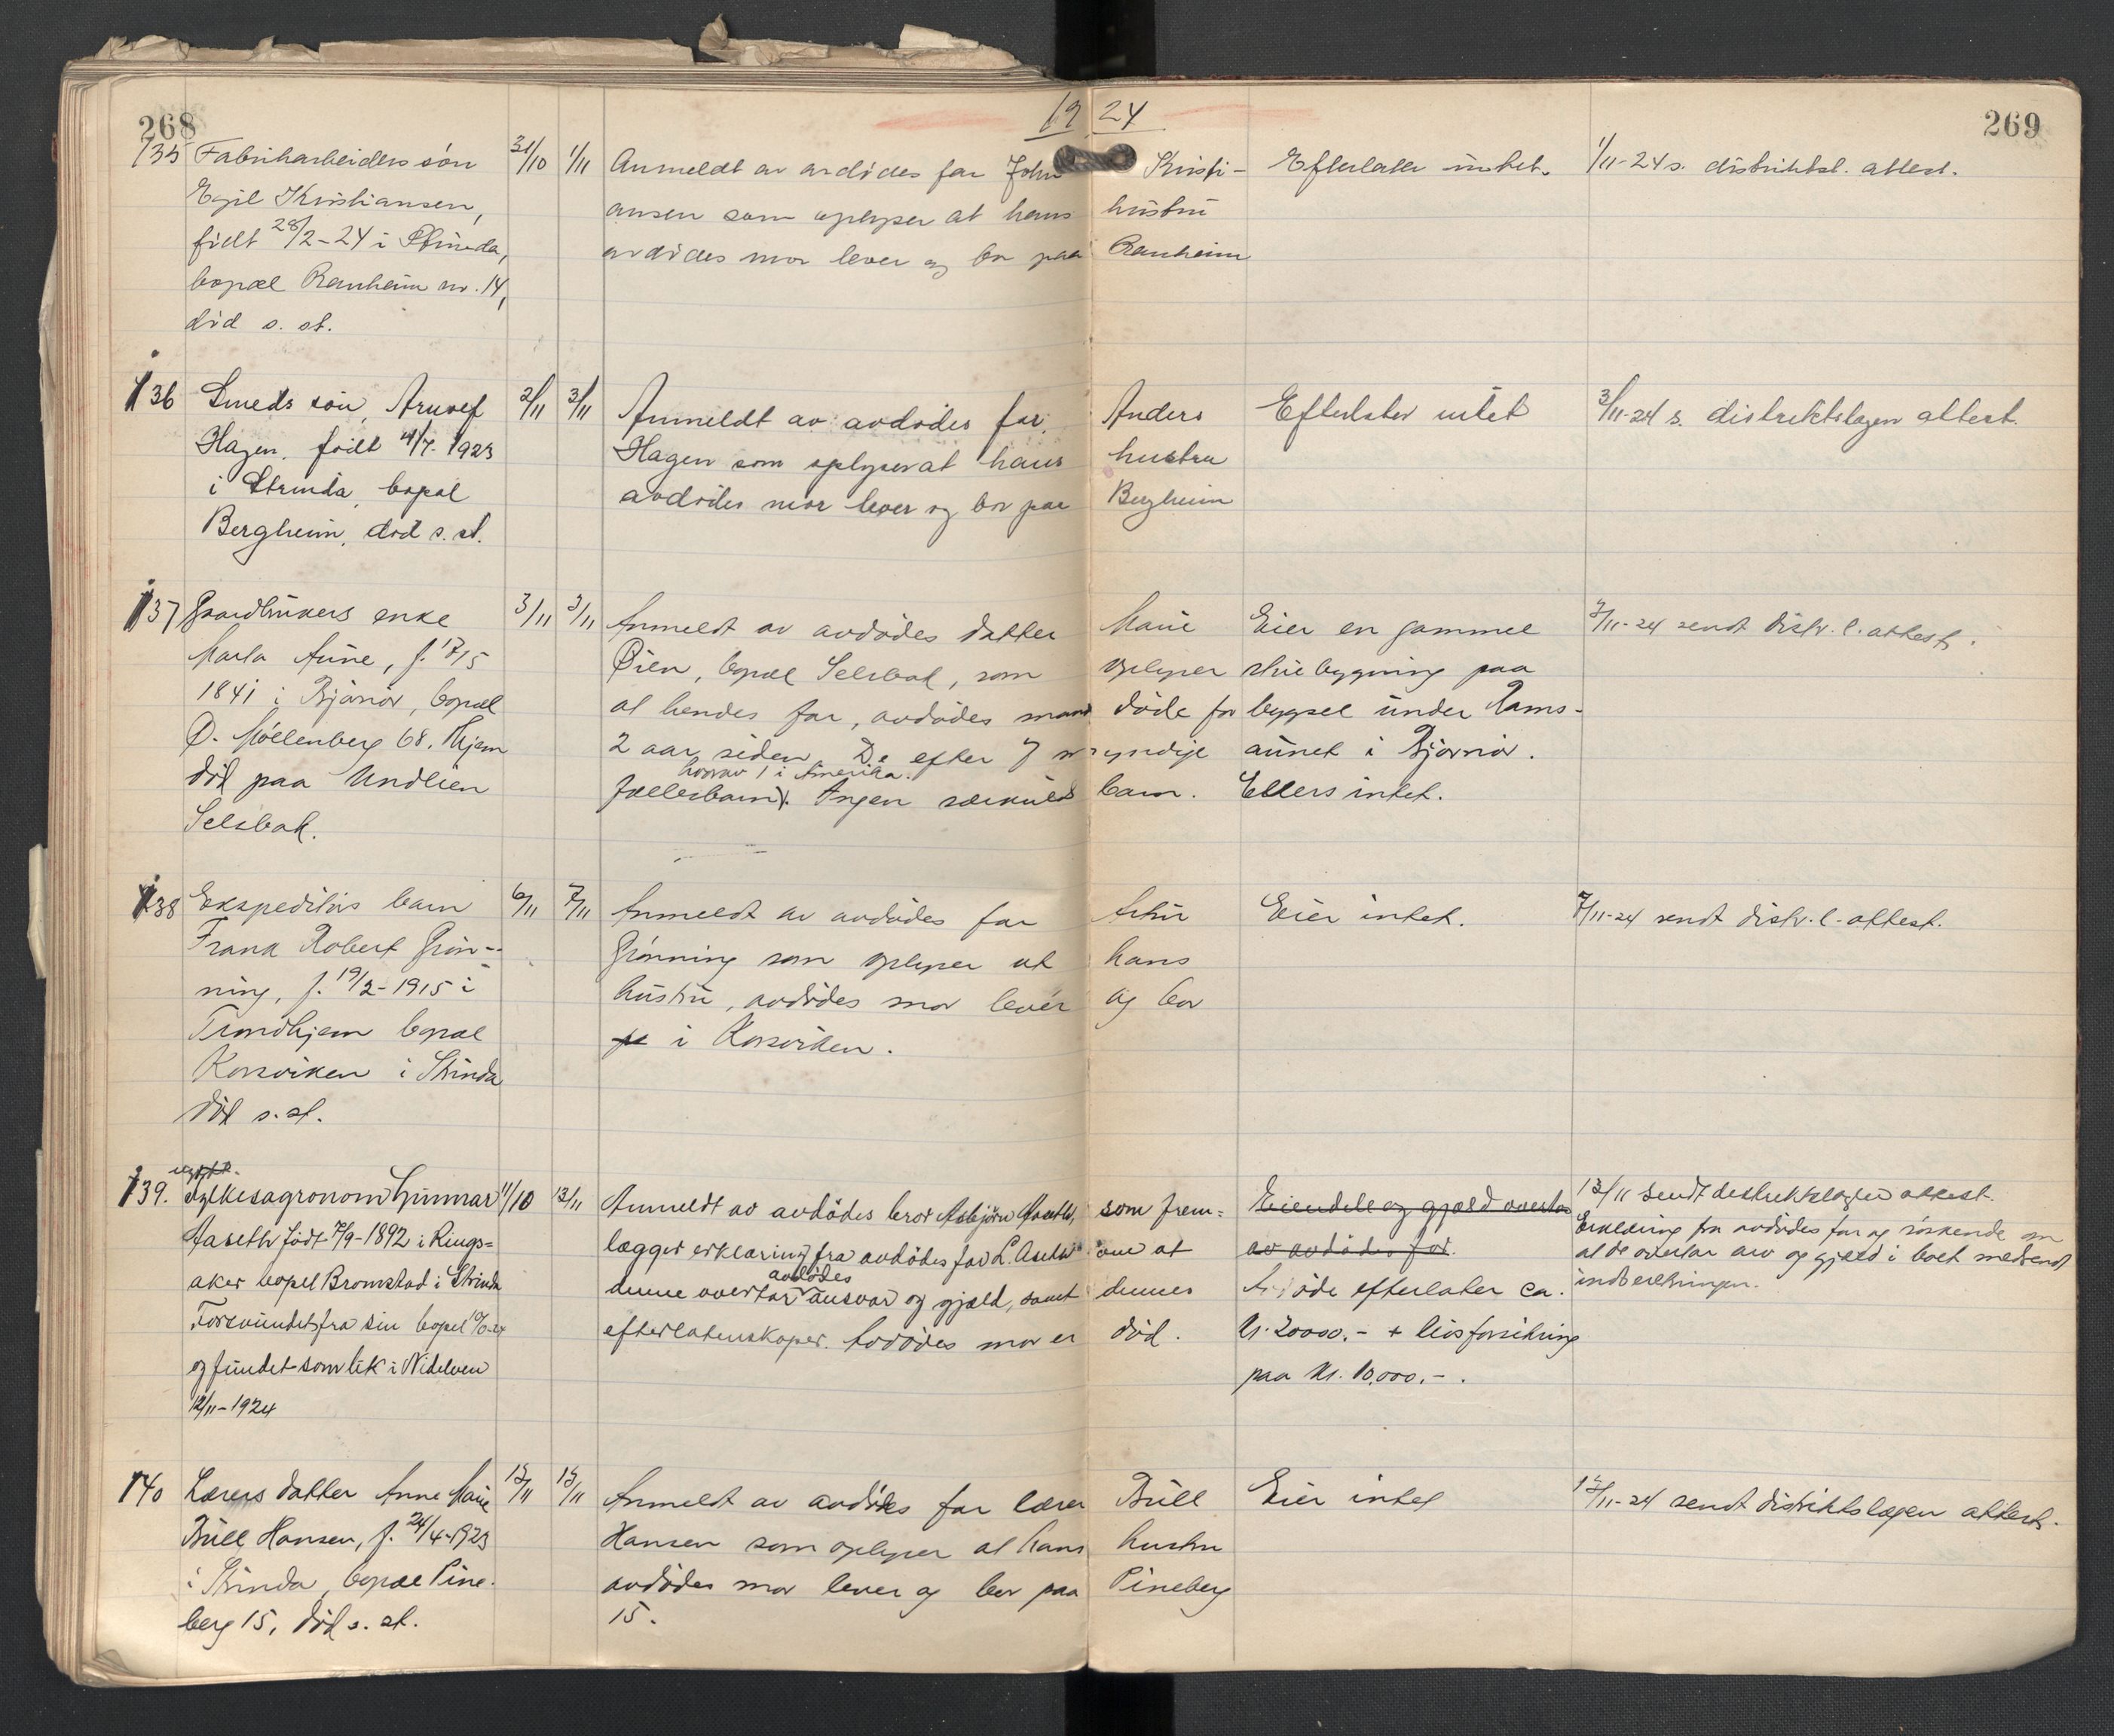 268
19 24
269
135 Fabrikarbeiders søn 31/10 1/11 Anmeldt av avdødes far John Kristi- Efterlater intet. 1/11-24 s. distriktsl. attest.
Egil Kristiansen, ansen som oplyser at hans hustru
født 28/2-24 i Strinda, avdødes mor lever og bor paa Ranheim
bopæl Ranheim nr. 14,
død s. st.
136 Smeds søn, Arnvef 2/11 3/11 Anmeldt av avdødes far, Anders Efterlater intet 3/11-24 s. distriktslægen attest.
Hagen, født 4/7-1923 Hagen som oplyser at hans hustru
i Strinda, bopæl avdødes mor lever og bor paa Bergheim
Bergheim, død s. st.
137 Gaardbrukers enke 3/11 7/11 Anmeldt av avdødes datter Marie Eier en gammel 7/11-24 sendt distr. l. attest.
Marta Aune, f. 17/5 Øien, bopæl Selsbak, som oplyser stuebygning paa
1841 i Bjørnør, bopæl at hendes far, avdødes mand døde for bygsel under Rams-
Ø. Møllenberg 68, Thjem 2 aar siden. De efter 7 myndige aunet i Bjørnør.
død paa Undlien hvorav 1 i Amerika.
Selsbak. fællesbarn). Ingen særkuld barn. Ellers intet.
138 Ekspeditørs barn 6/11 7/11 Anmeldt av avdødes far Artur Eier intet. 7/11-24 sendt distr. l. attest.
Frank Robert Grøn- Grønning som oplyser at hans
ning, f. 19/2-1915 i hustru, avdødes mor lever og bor
Trondhjem bopæl pa i Korsviken.
Korsviken i Strinda
død s. st.
139. Fylkesagronom Gunnar 11/10 13/11 Anmeldt av avdødes bror Asbjørn Aaseth, som frem= Eiendele og gjæld overtas 13/11 sendt distriktslægen attest.
Aaseth født 7/9-1892 i Rings= lægger erklæring fra avdødes far L. Aseth om at av avdødes far. Erklæring fra avdødes far og søskende om
aker bopel Bromstad i Strinda denne overtar avdødes ansvar og gjæld, samt dennes Avdøde efterlater ca. at de overtar arv og gjæld i boet medsendt
Forsvundet fra sin bopel 10/10-24 efterlatenskaper. Avdødes mor er død. kr. 20000.- + livsforsikring indberetningen.
og fundet som lik i Nidelven paa kr. 10,000.-.
12/11-1924
140 Lærers datter Anne Marie 15/11 15/11 Anmeldt av avdødes far lærer Bull Eier intet 15/11-24 sendt distriktslægen attest.
Bull Hansen, f. 24/4-1923 Hansen som oplyser at hans hustru
i Strinda, bopæl Pine- avdødes mor lever og bor paa Pineberg
berg 15, død s. st. 15.